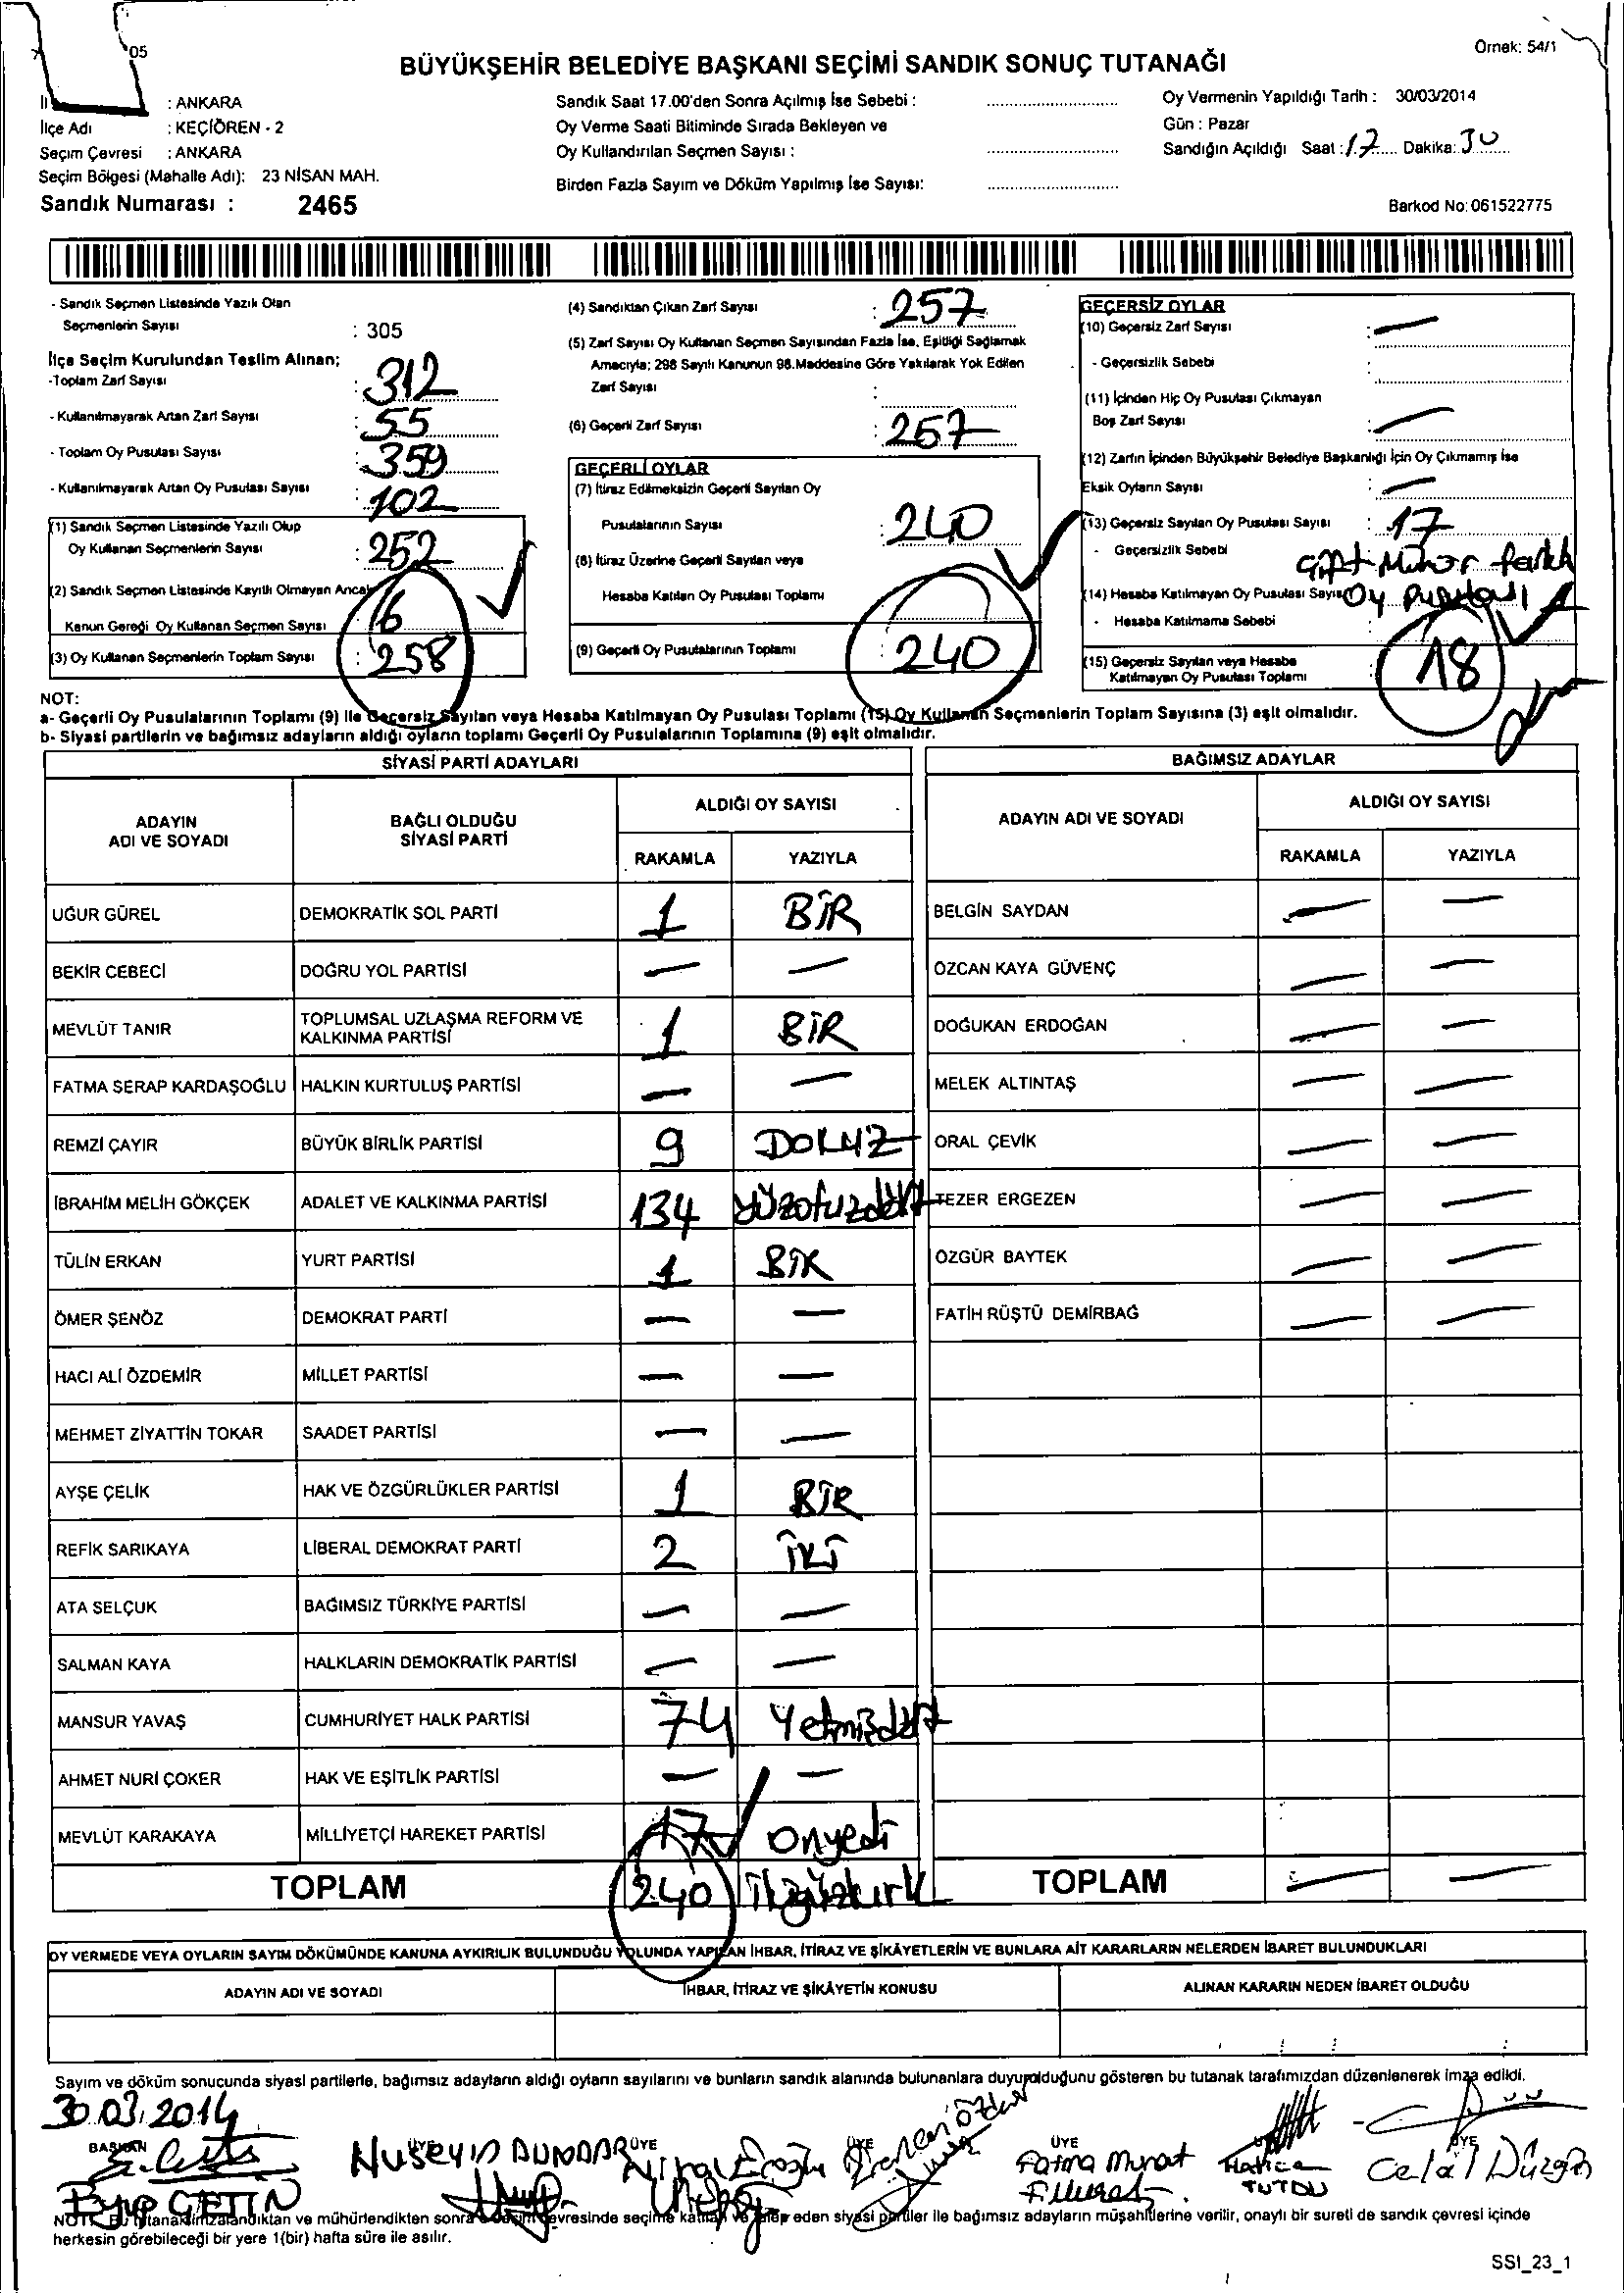 05
Örnek: 54/1
BÜYÜKŞEHİR BELEDİYE BAŞKANI SEÇİMİ SANDIK SONUÇ TUTANAĞI
: ANKARA
İlçe Adı : KEÇİÖREN - 2
Seçim Çevresi : ANKARA
Seçim Bölgesi (Mahalle Adı): 23 NİSAN MAH.
Sandık Numarası : 2465
Sandık Saat 17.00'den Sonra Açılmış İse Sebebi :
Oy Verme Saati Bitiminde Sırada Bekleyen ve
Oy Kullandırılan Seçmen Sayısı :
Birden Fazla Sayım ve Döküm Yapılmış İse Sayısı:
Oy Vermenin Yapıldığı Tarih : 30/03/2014
Gün : Pazar
Sandığın Açıldığı Saat : 17 Dakika: 30
Barkod No: 061522775
- Sandık Seçmen Listesinde Yazılı Olan
Seçmenlerin Sayısı : 305
İlçe Seçim Kurulundan Teslim Alınan;
-Toplam Zarf Sayısı : 312
- Kullanılmayarak Artan Zarf Sayısı : 55
- Toplam Oy Pusulası Sayısı : 359
- Kullanılmayarak Artan Oy Pusulası Sayısı : 102
(1) Sandık Seçmen Listesinde Yazılı Olup
Oy Kullanan Seçmenlerin Sayısı : 252
(2) Sandık Seçmen Listesinde Kayıtlı Olmayan Ancak
Kanun Gereği Oy Kullanan Seçmen Sayısı : 6
(3) Oy Kullanan Seçmenlerin Toplam Sayısı : 258
(4) Sandıktan Çıkan Zarf Sayısı : 257
(5) Zarf Sayısı Oy Kullanan Seçmen Sayısından Fazla İse, Eşitliği Sağlamak
Amacıyla; 298 Sayılı Kanunun 98.Maddesine Göre Yakılarak Yok Edilen
Zarf Sayısı :
(6) Geçerli Zarf Sayısı : 257
GEÇERLİ OYLAR
(7) İtiraz Edilmeksizin Geçerli Sayılan Oy
Pusulalarının Sayısı : 240
(8) İtiraz Üzerine Geçerli Sayılan veya
Hesaba Katılan Oy Pusulası Toplamı
(9) Geçerli Oy Pusulalarının Toplamı : 240
GEÇERSİZ OYLAR
(10) Geçersiz Zarf Sayısı : —
- Geçersizlik Sebebi :
(11) İçinden Hiç Oy Pusulası Çıkmayan
Boş Zarf Sayısı : —
(12) Zarfın İçinden Büyükşehir Belediye Başkanlığı İçin Oy Çıkmamış İse
Eksik Oyların Sayısı : —
(13) Geçersiz Sayılan Oy Pusulası Sayısı : 17
- Geçersizlik Sebebi Çift Mühür farklı
(14) Hesaba Katılmayan Oy Pusulası Sayısı Oy Pusulası 1
- Hesaba Katılmama Sebebi
(15) Geçersiz Sayılan veya Hesaba
Katılmayan Oy Pusulası Toplamı 18
NOT:
a- Geçerli Oy Pusulalarının Toplamı (9) ile Geçersiz Sayılan veya Hesaba Katılmayan Oy Pusulası Toplamı (15) Oy Kullanan Seçmenlerin Toplam Sayısına (3) eşit olmalıdır.
b- Siyasi partilerin ve bağımsız adayların aldığı oyların toplamı Geçerli Oy Pusulalarının Toplamına (9) eşit olmalıdır.
SİYASİ PARTİ ADAYLARI
ADAYIN ADI VE SOYADI BAĞLI OLDUĞU SİYASİ PARTİ ALDIĞI OY SAYISI
RAKAMLA YAZIYLA
UĞUR GÜREL DEMOKRATİK SOL PARTİ 1 BİR
BEKİR CEBECİ DOĞRU YOL PARTİSİ — —
MEVLÜT TANIR TOPLUMSAL UZLAŞMA REFORM VE KALKINMA PARTİSİ 1 BİR
FATMA SERAP KARDAŞOĞLU HALKIN KURTULUŞ PARTİSİ — —
REMZİ ÇAYIR BÜYÜK BİRLİK PARTİSİ 9 DOKUZ
İBRAHİM MELİH GÖKÇEK ADALET VE KALKINMA PARTİSİ 134 yüzotuzdört
TÜLİN ERKAN YURT PARTİSİ 1 BİR
ÖMER ŞENÖZ DEMOKRAT PARTİ — —
HACI ALİ ÖZDEMİR MİLLET PARTİSİ — —
MEHMET ZİYATTİN TOKAR SAADET PARTİSİ — —
AYŞE ÇELİK HAK VE ÖZGÜRLÜKLER PARTİSİ 1 BİR
REFİK SARIKAYA LİBERAL DEMOKRAT PARTİ 2 İKİ
ATA SELÇUK BAĞIMSIZ TÜRKİYE PARTİSİ — —
SALMAN KAYA HALKLARIN DEMOKRATİK PARTİSİ — —
MANSUR YAVAŞ CUMHURİYET HALK PARTİSİ 74 Yetmişdört
AHMET NURİ ÇOKER HAK VE EŞİTLİK PARTİSİ — —
MEVLÜT KARAKAYA MİLLİYETÇİ HAREKET PARTİSİ 17 Onyedi
TOPLAM 240 İkiyüzkırk
BAĞIMSIZ ADAYLAR
ADAYIN ADI VE SOYADI ALDIĞI OY SAYISI
RAKAMLA YAZIYLA
BELGİN SAYDAN — —
ÖZCAN KAYA GÜVENÇ — —
DOĞUKAN ERDOĞAN — —
MELEK ALTINTAŞ — —
ORAL ÇEVİK — —
TEZER ERGEZEN — —
ÖZGÜR BAYTEK — —
FATİH RÜŞTÜ DEMİRBAĞ — —
TOPLAM — —
OY VERMEDE VEYA OYLARIN SAYIM DÖKÜMÜNDE KANUNA AYKIRILIK BULUNDUĞU YOLUNDA YAPILAN İHBAR, İTİRAZ VE ŞİKÂYETLERİN VE BUNLARA AİT KARARLARIN NELERDEN İBARET BULUNDUKLARI
ADAYIN ADI VE SOYADI İHBAR, İTİRAZ VE ŞİKÂYETİN KONUSU ALINAN KARARIN NEDEN İBARET OLDUĞU
Sayım ve döküm sonucunda siyasi partilerle, bağımsız adayların aldığı oyların sayılarını ve bunların sandık alanında bulunanlara duyurulduğunu gösteren bu tutanak tarafımızdan düzenlenerek imza edildi.
30.03.2014
BAŞKAN ÜYE ÜYE ÜYE ÜYE ÜYE
Eyüp ÇETİN Hüseyin DÜNDAR Fatma Murat Hatice TUTDU Celal Düzgün
NOT: Bu tutanak imzalandıktan ve mühürlendikten sonra seçim çevresinde seçime katılan ve talep eden siyasi partiler ile bağımsız adayların müşahitlerine verilir, onaylı bir sureti de sandık çevresi içinde
herkesin görebileceği bir yere 1(bir) hafta süre ile asılır.
SSI_23_1